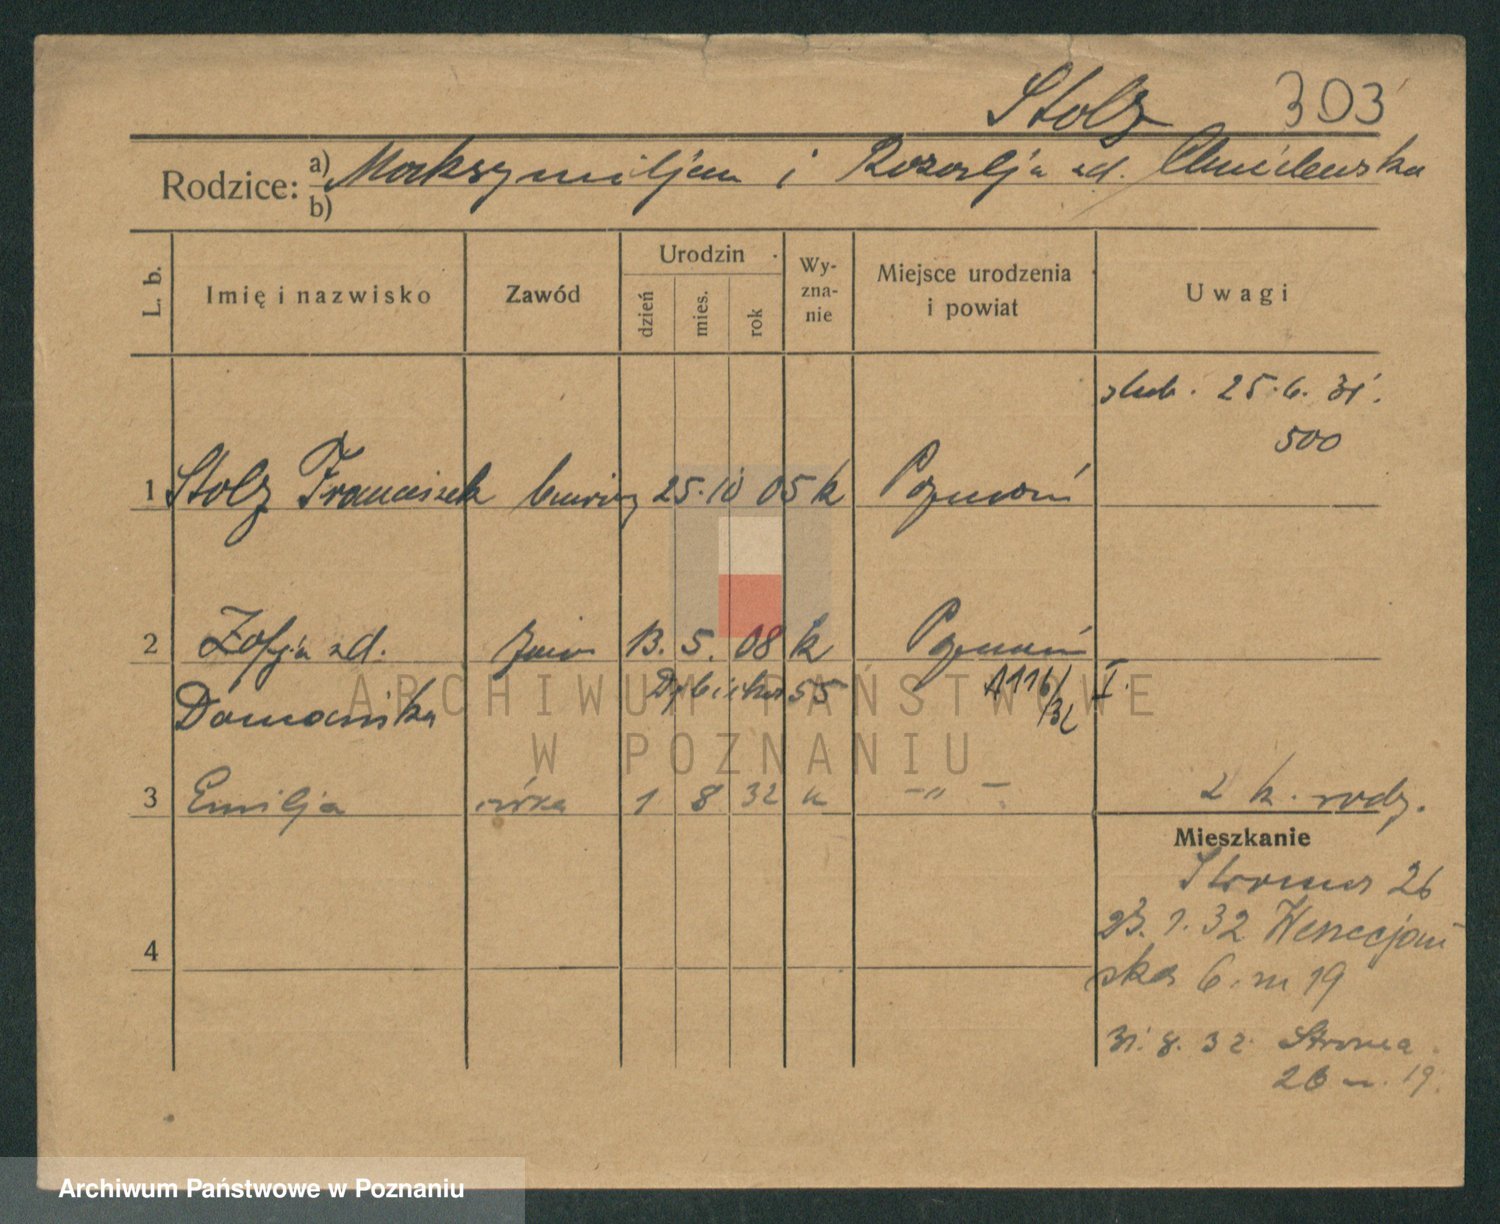 Stolz 303
Rodzice: a) Maksymiljan i Rozalja zd. Chmielewska
b)
L. b. Imię i nazwisko Zawód Urodzin dzień mies. rok Wy-zna-nie Miejsce urodzenia i powiat Uwagi
ślub. 25.6.31.
500
1 Stolz Franciszek 25.10 05 k Poznań
2 Zofja zd. 13. 5. 08 k Poznań
Domańska Dębińska 55 A116/32 I.
3 Emilja córka 1 8 32 k -"-
2 k. rodz.
Mieszkanie
Stroma 26
23.1.32 Wenecjań
ska 6. m 19
4
31.8.32 Stroma
26 m. 19.
ARCHIWUM PAŃSTWOWE
W POZNANIU
Archiwum Państwowe w Poznaniu